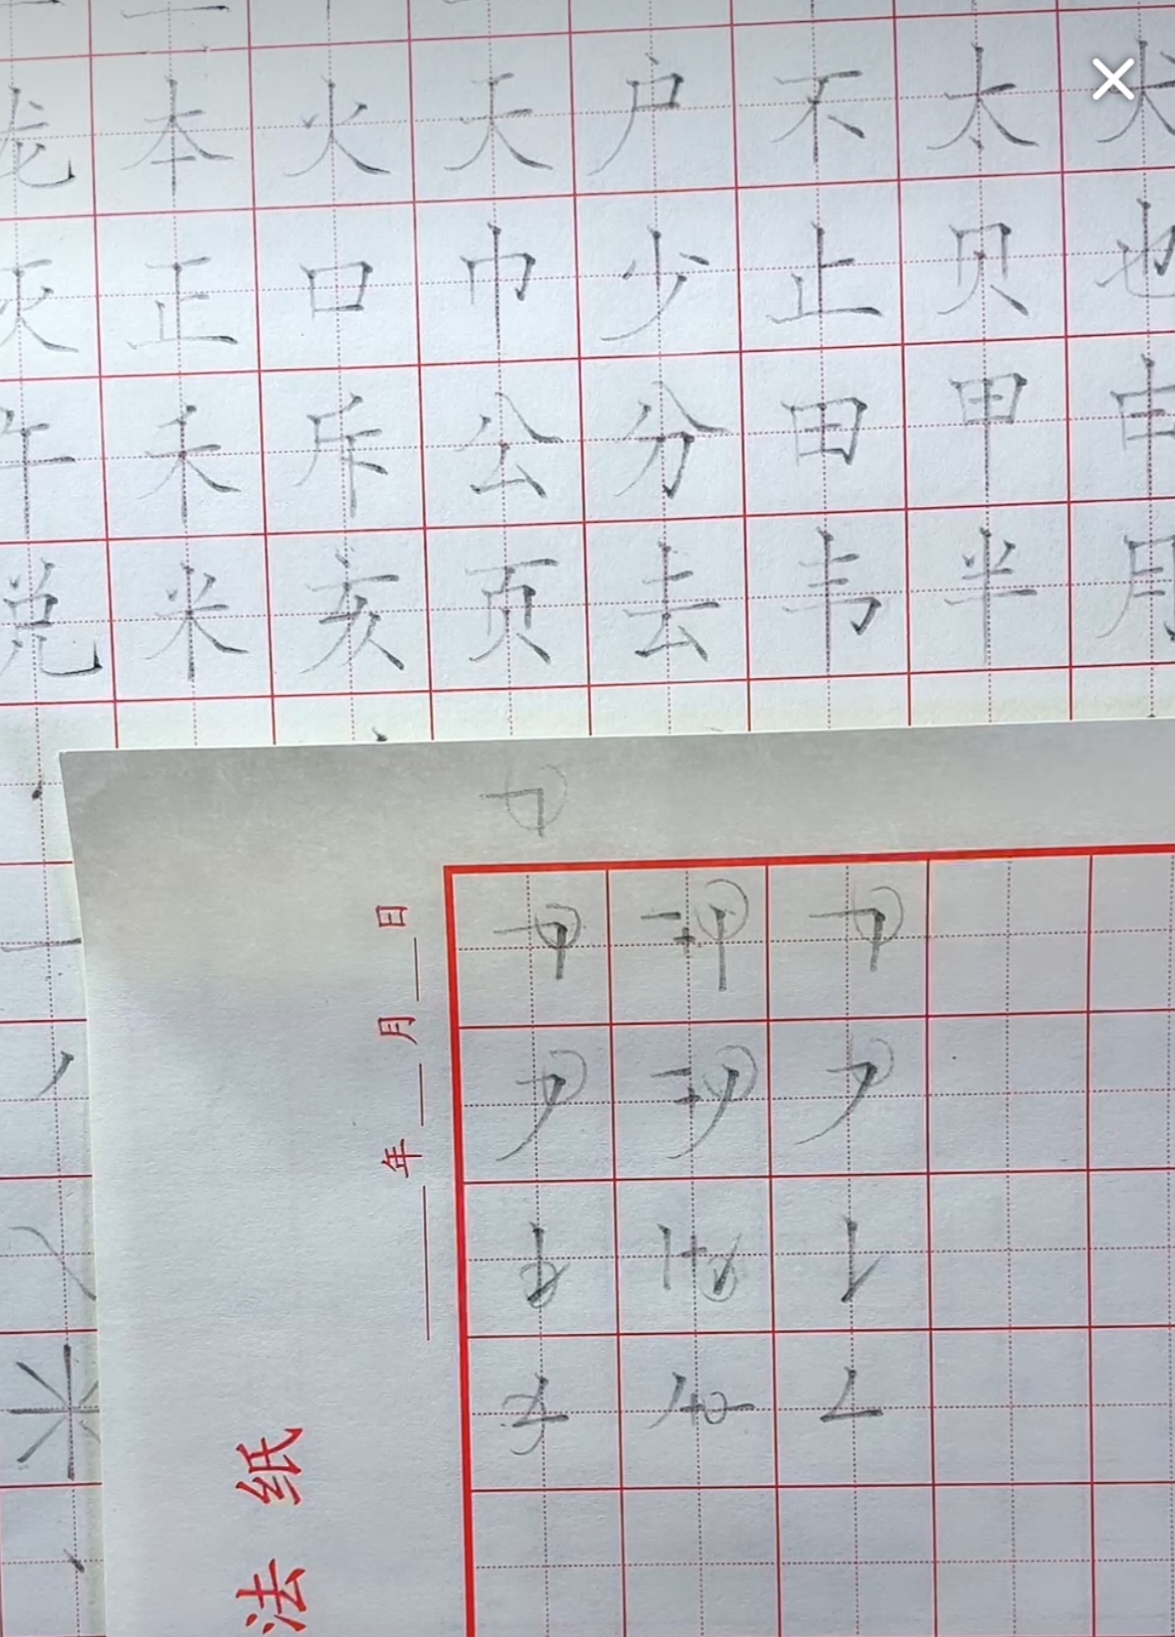 龙 本 火 天 户 不 太 犬
灭 正 口 巾 少 止 贝 也
午 禾 斥 公 分 田 甲 申
兑 米 亥 页 去 韦 半 月
年 月 日
法 纸